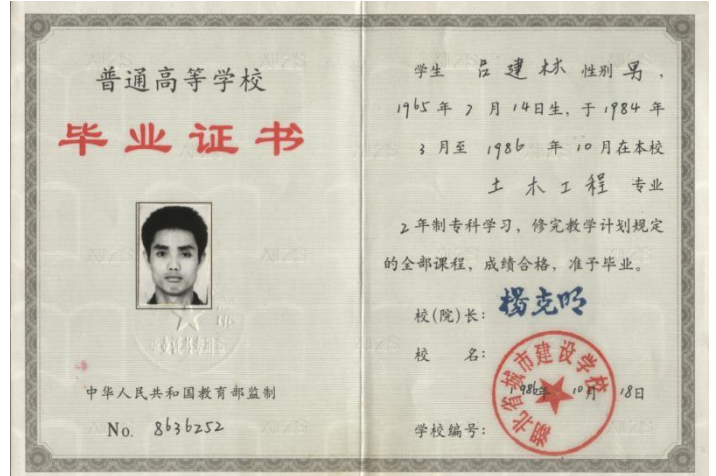 普通高等学校
毕业证书
中华人民共和国教育部监制
No. 8636252
学生 吕建林 性别 男，
1965 年 7 月 14日生，于 1984 年
3 月至 1986 年 10 月在本校
土木工程 专业
2 年制专科学习，修完教学计划规定
的全部课程，成绩合格，准予毕业。
校(院)长： 杨克明
校 名：
湖北省城市建设学校
1986年 10月 18日
学校编号：